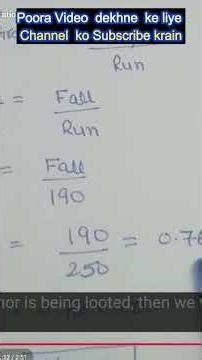 Poora Video dekhne ke liye
Channel ko Subscribe krain
Run
= Fall
Run
= Fall
190
= 190
250
= 0.76
nor is being looted, then we
:32 / 2:51